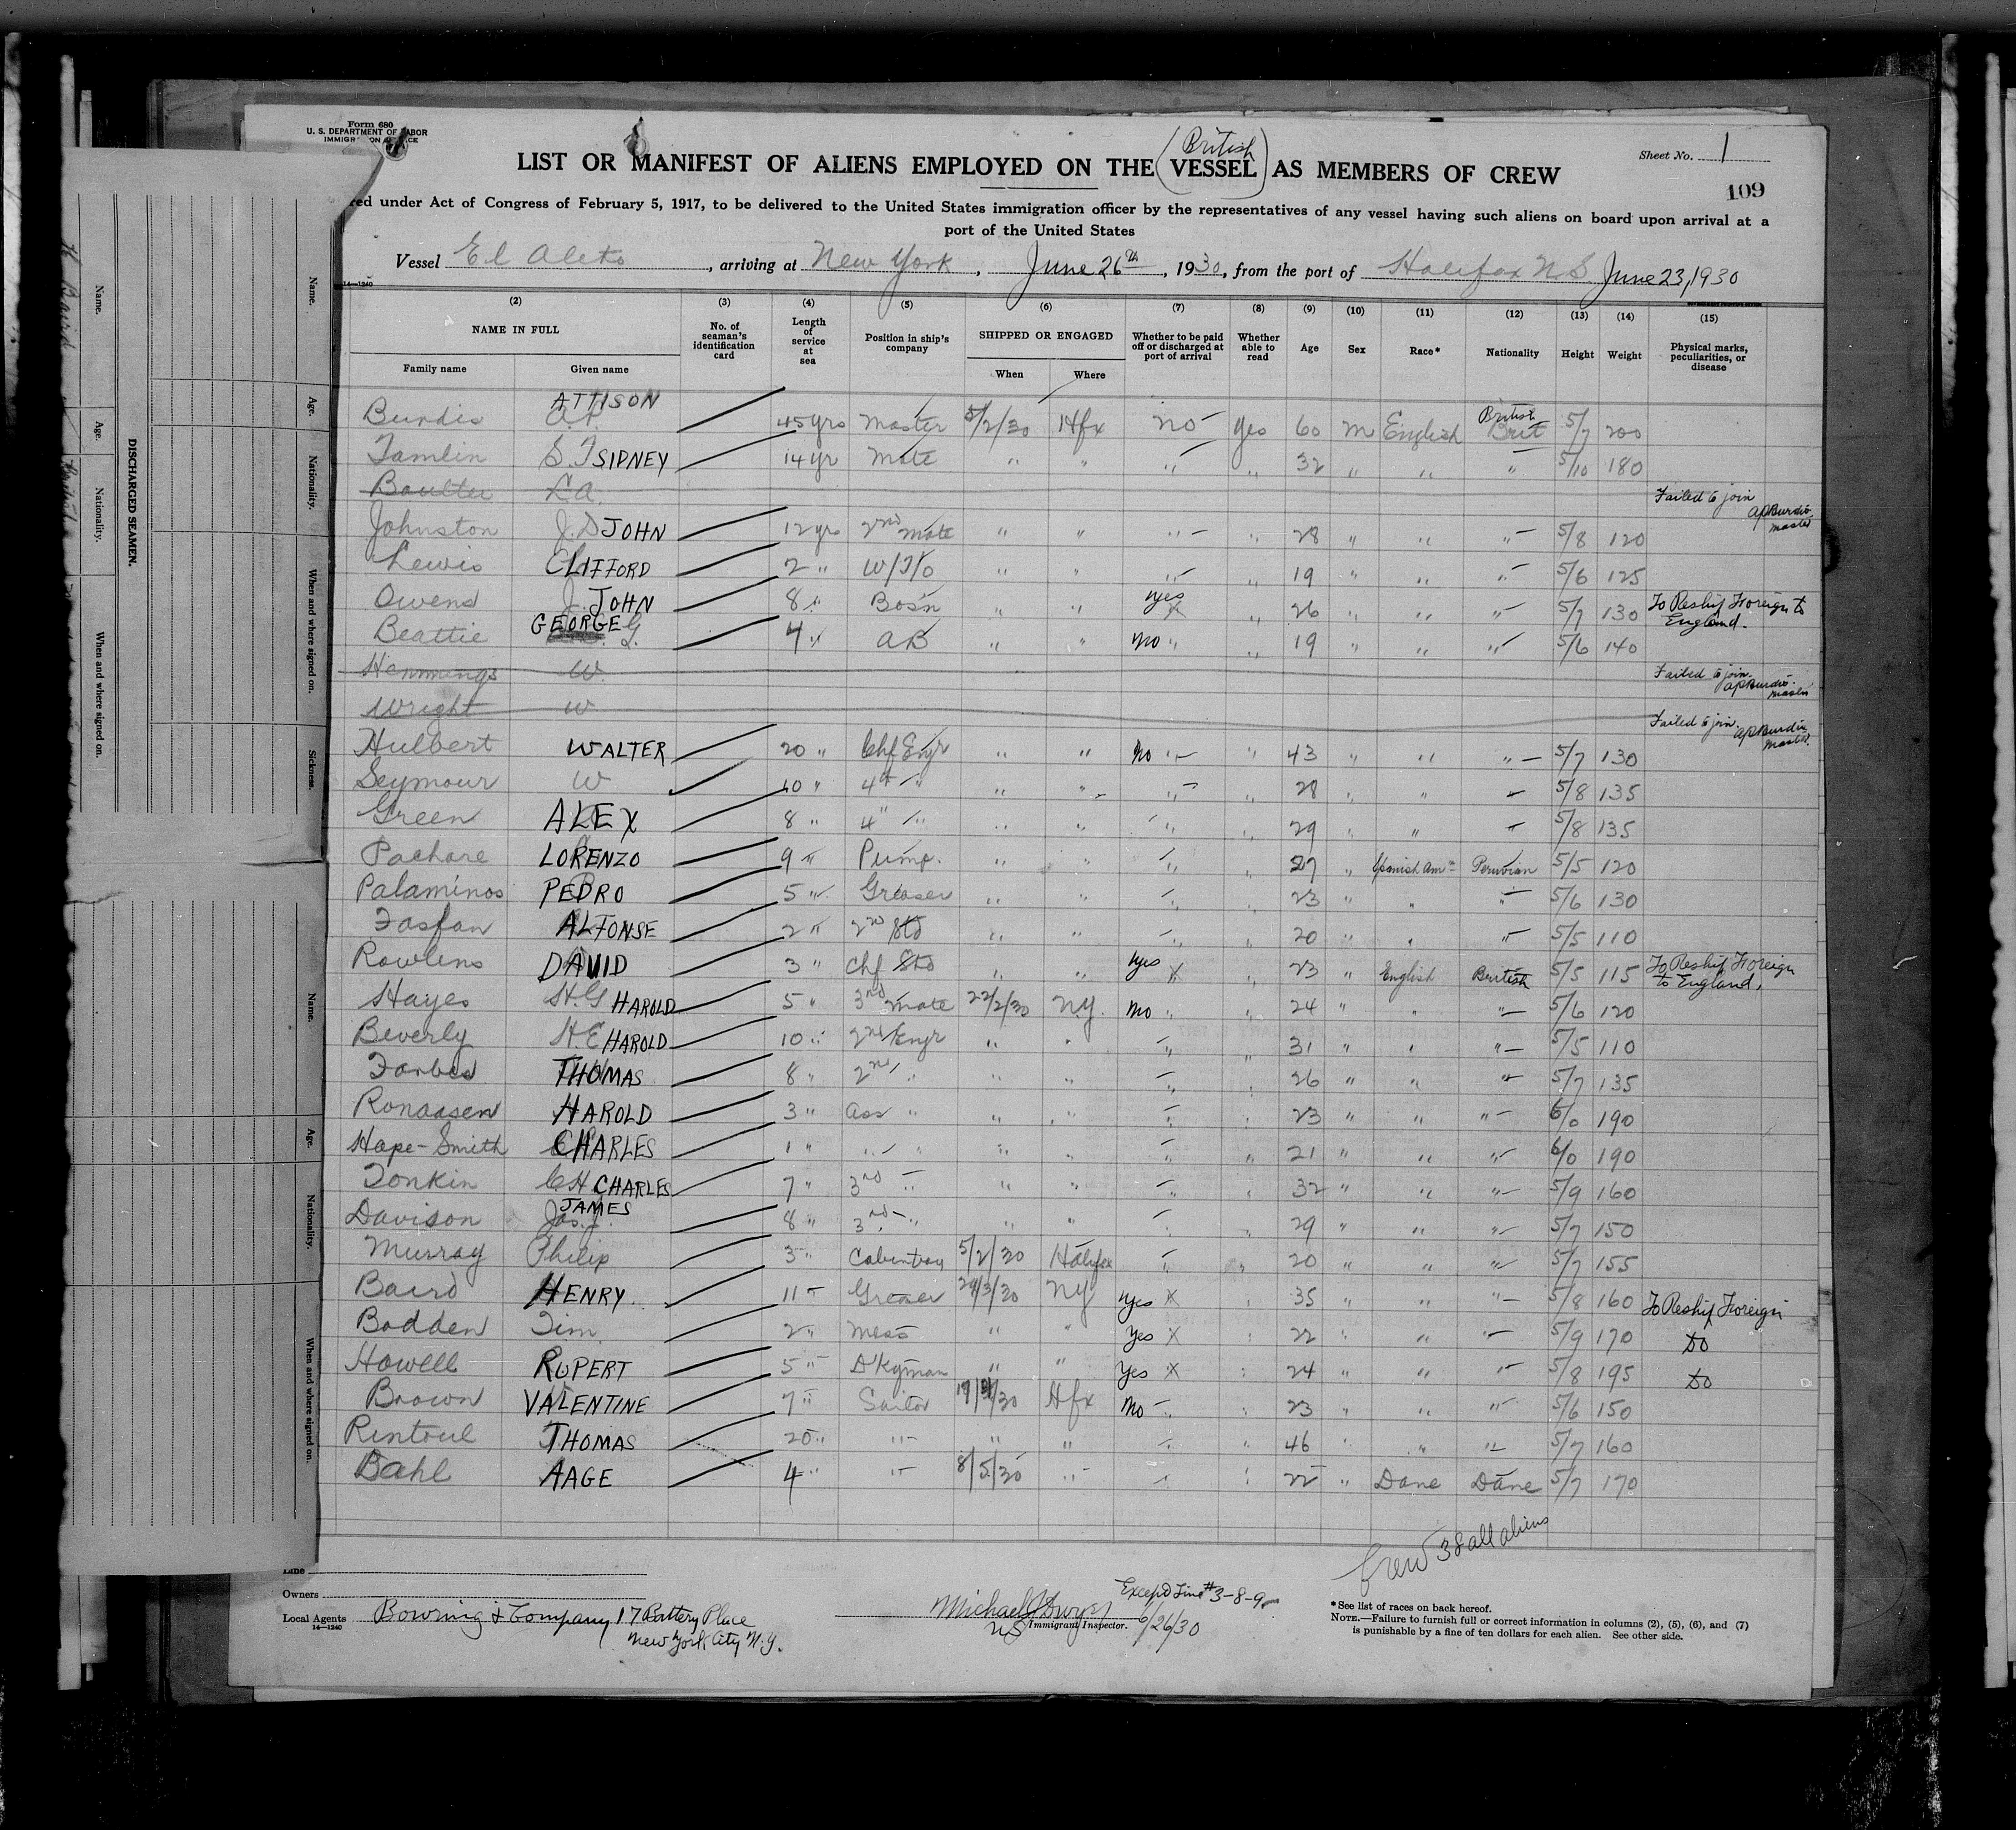 Form 680
U. S. DEPARTMENT OF LABOR
Sheet No. 1
109
British
LIST OR MANIFEST OF ALIENS EMPLOYED ON THE (VESSEL) AS MEMBERS OF CREW
red under Act of Congress of February 5, 1917, to be delivered to the United States immigration officer by the representatives of any vessel having such aliens on board upon arrival at a
port of the United States
Vessel El Aleto, arriving at New York, June 26th, 1930, from the port of Halifax N.S June 23, 1930
14—1240
(2) (3) (4) (5) (6) (7) (8) (9) (10) (11) (12) (13) (14) (15)
NAME IN FULL No. of seaman's identification card Length of service at sea Position in ship's company SHIPPED OR ENGAGED Whether to be paid off or discharged at port of arrival Whether able to read Age Sex Race* Nationality Height Weight Physical marks, peculiarities, or disease
Family name Given name When Where
Burdis A.P. ATTISON 45 yrs Master 5/2/30 Hfx no yes 60 M English British Brit 5/7 200
Tamlin S.T SIDNEY 14 yr Mate " " " " 32 " " " 5/10 180
Boulter L A. Failed to join APBurdis master
Johnston J.D JOHN 12 yrs 2nd Mate " " " " 28 " " " 5/8 120
Lewis CLIFFORD 2 " W/T/o " " " " 19 " " " 5/6 125
Owens J. JOHN 8 " Bos'n " " yes X " 26 " " " 5/7 130 To Reship Foreign to England.
Beattie GEORGE G. 4 " AB " " no " " 19 " " " 5/6 140
Hemmings W. Failed to join. APBurdis master
Wright W Failed to join. APBurdis master.
Hulbert WALTER 20 " Chf Engr " " No " " 43 " " " 5/7 130
Seymour W 10 " 4th " " " " " 28 " " " 5/8 135
Green ALEX 8 " 4" " " " " " 29 " " " 5/8 135
Pachare LORENZO 9 " Pump. " " " " 27 " Spanish Am Peruvian 5/5 120
Palaminos PEDRO 5 " Greaser " " " " 23 " " " 5/6 130
Fasfan ALFONSE 2 " 2nd Std " " " " 20 " " " 5/5 110
Rowlens DAVID 3 " Chf Std " " yes X " 23 " English British 5/5 115 To Reship Foreign to England.
Hayes H.G HAROLD 5 " 3rd Mate 22/2/30 N.Y. no " " 24 " " " 5/6 120
Beverly H.E HAROLD 10 " 2nd Engr " " " " 31 " " " 5/5 110
Forbes THOMAS 8 " 2nd " " " " " 26 " " " 5/7 135
Ronaasen HAROLD 3 " Ass " " " " " 23 " " " 6/0 190
Hope-Smith CHARLES 1 " " " " " " " 21 " " " 6/0 190
Tonkin C H CHARLES 7 " 3rd " " " " " 32 " " " 5/9 160
Davison Jas. J. JAMES 8 " 3rd " " " " " 29 " " " 5/7 150
Murray Philip 3 " Cabin boy 5/2/30 Halifax " " 20 " " " 5/7 155
Baird HENRY 11 " Greaser 29/3/30 NY yes X " 35 " " " 5/8 160 To Reship Foreign
Bodden Tim. 2 " Mess " " yes X " 22 " " " 5/9 170 Do
Howell RUPERT 5 " D'Kyman " " yes X " 24 " " " 5/8 195 Do
Brown VALENTINE 7 " Sailor /30 Hfx no " " 23 " " " 5/6 150
Rintoul THOMAS 20 " " " " " " 46 " " " 5/7 160
Bahl AAGE 4 " " 8/5/30 " " " 22 " Dane Dane 5/7 170
Crew 38 all aliens
Line
Owners
Local Agents Bowring & Company 17 Battery Place
New York City N.Y.
14—1240
Except Line #3-8-9
Michael
US Immigrant Inspector. 6/26/30
*See list of races on back hereof.
NOTE.—Failure to furnish full or correct information in columns (2), (5), (6), and (7)
is punishable by a fine of ten dollars for each alien. See other side.
DISCHARGED SEAMEN.
Name. Age. Nationality. When and where signed on.
Name. Age. Nationality. When and where signed on. Sickness.
Name. Age. Nationality. When and where signed on.